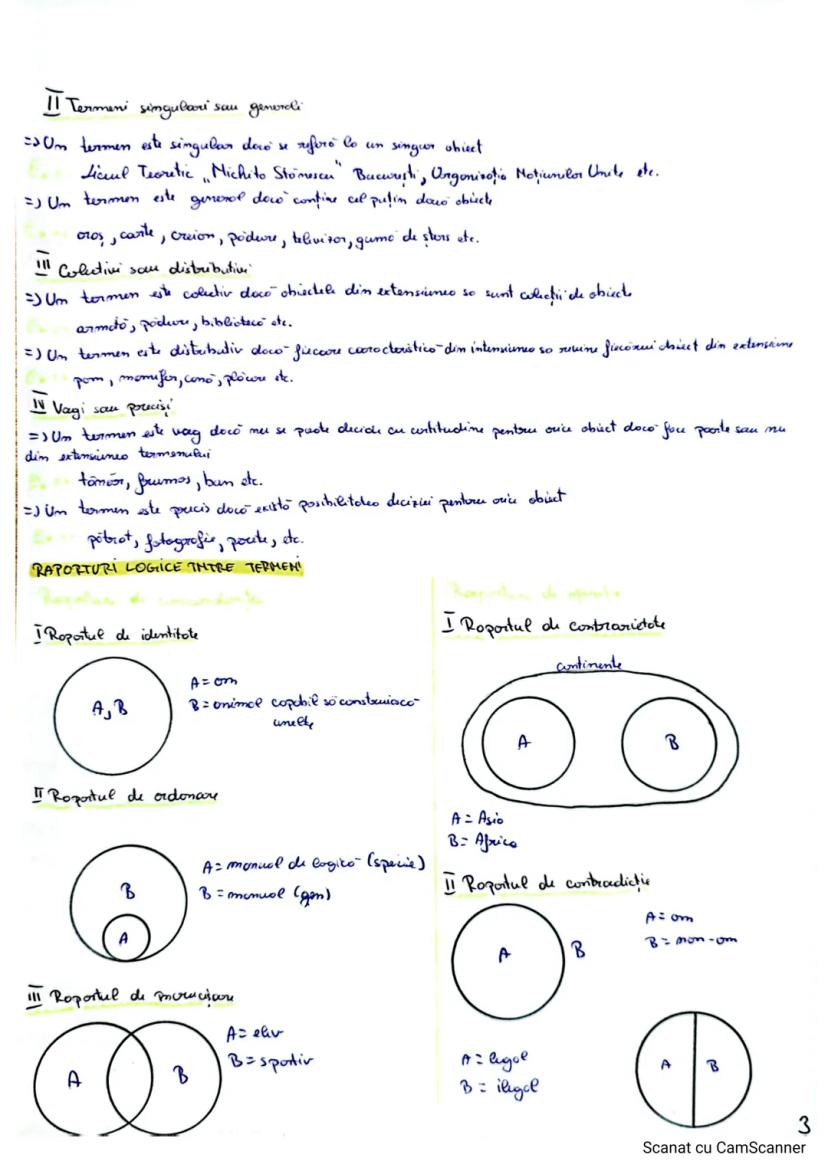 II Termeni singulari sau generali
=> Un termen este singular dacă se referă la un singur obiect
Ex.: Liceul Teoretic „Nichita Stănescu" București, Organizația Națiunilor Unite etc.
=> Un termen este general dacă conține cel puțin două obiecte
Ex.: oraș, carte, creion, pădure, televizor, gumă de șters etc.
III Colectivi sau distributivi
=> Un termen este colectiv dacă obiectele din extensiunea sa sunt colecții de obiecte
Ex.: armată, pădure, bibliotecă etc.
=> Un termen este distributiv dacă fiecare caracteristică din intensiunea sa revine fiecărui obiect din extensiune
Ex.: pom, mamifer, cană, plăcere etc.
IV Vagi sau preciși
=> Un termen este vag dacă nu se poate decide cu certitudine pentru orice obiect dacă face parte sau nu
din extensiunea termenului
Ex.: tânăr, frumos, bun etc.
=> Un termen este precis dacă există posibilitatea deciziei pentru orice obiect
Ex.: pătrat, fotografie, poete, etc.
RAPORTURI LOGICE ÎNTRE TERMENI
Raporturi de concordanță
I Raportul de identitate
A, B
A = om
B = animal capabil să construiască
unelte
II Raportul de ordonare
B
A
A = manual de logică (specie)
B = manual (gen)
III Raportul de încrucișare
A
B
A = elev
B = sportiv
Raporturi de opoziție
I Raportul de contrarietate
continente
A
B
A = Asia
B = Africa
II Raportul de contradicție
A
B
A = om
B = non-om
A = legal
B = ilegal
A
B
3
Scanat cu CamScanner